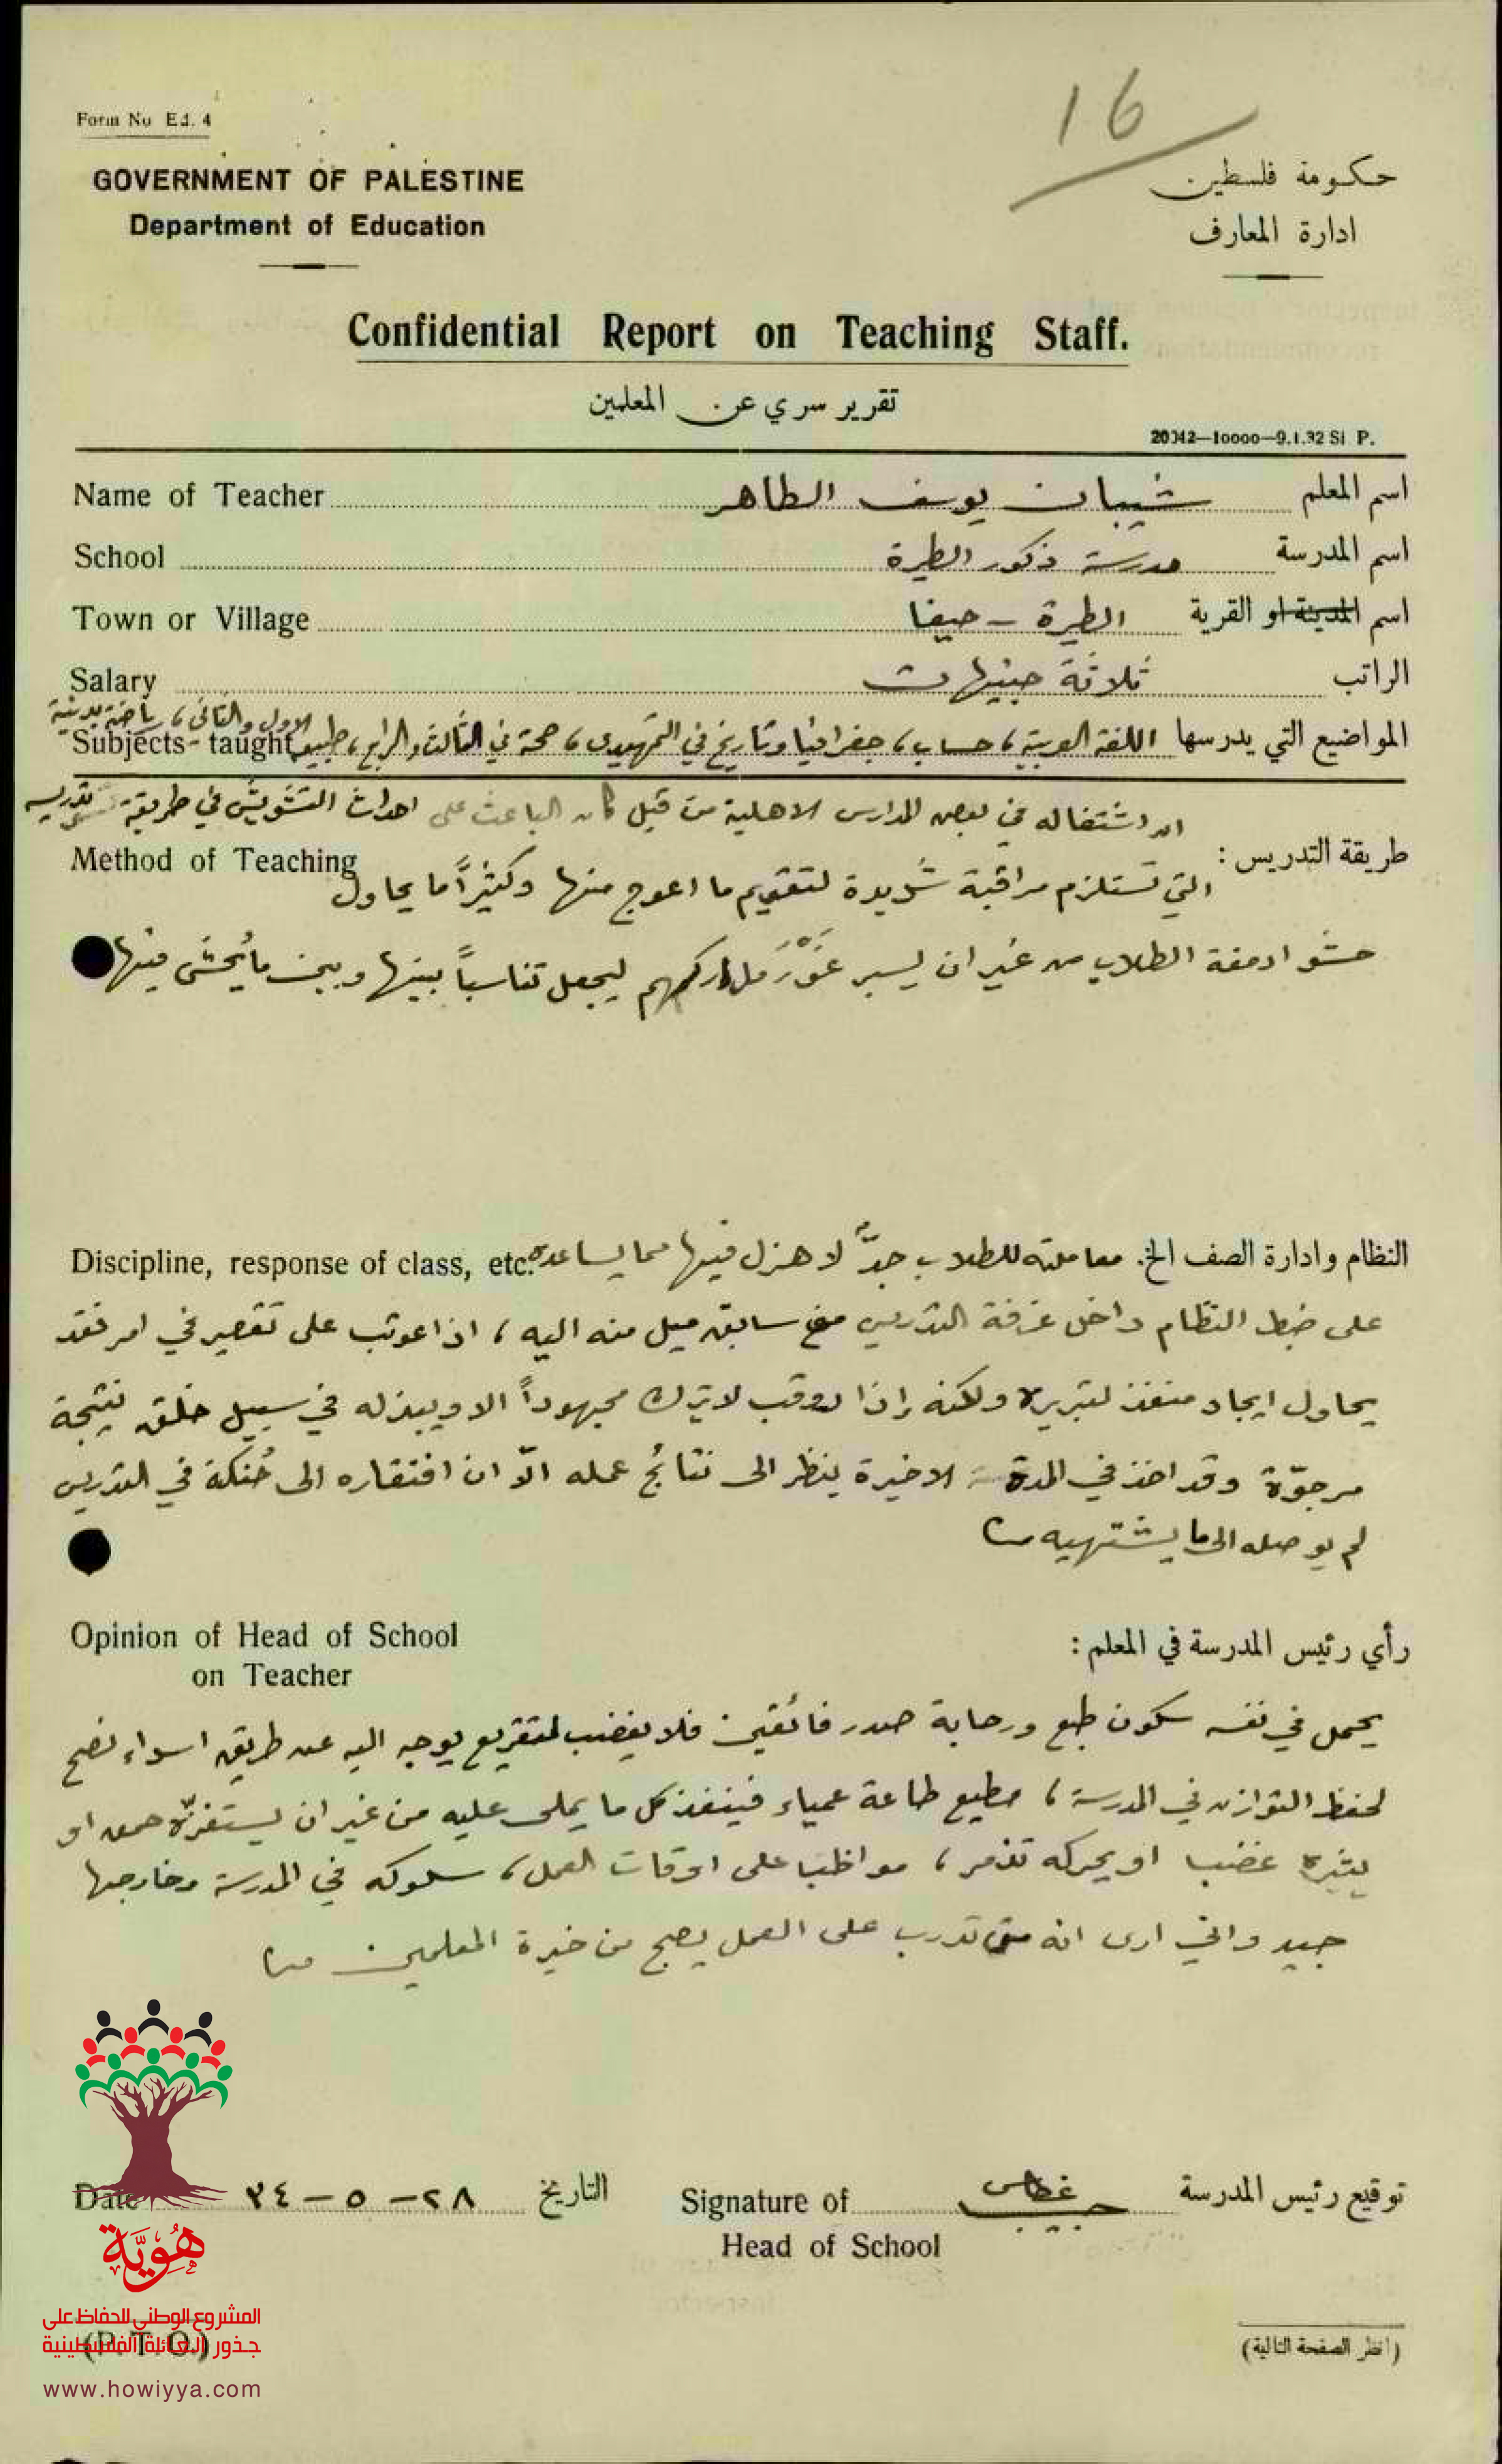 16
Form No Ed. 4
GOVERNMENT OF PALESTINE
Department of Education
حكومة فلسطين
ادارة المعارف
Confidential Report on Teaching Staff.
تقرير سري عن المعلمين
20042—10000—9.1.32 Si P.
Name of Teacher شيبان يوسف الطاهر اسم المعلم
School مدرسة ذكور الطيرة اسم المدرسة
Town or Village الطيرة - حيفا اسم المدينة او القرية
Salary ثلاثة جنيهات الراتب
الاول والثاني، رياضة بدنية
Subjects taught المواضيع التي يدرسها اللغة العربية، حساب، جغرافيا وتاريخ في التمهيدي، صحة في الثالث والرابع، طبيعة
Method of Teaching طريقة التدريس :
ان اشتغاله في بعض المدارس الاهلية من قبل كان الباعث على احداث التشويش في طريقة تدريسه
التي تستلزم مراقبة شديدة لتقويم ما اعوج منها وكثيراً ما يحاول
حشو ادمغة الطلاب من غير ان يسبر غَوْرَ مداركهم ليجعل تناسباً بينها وبين ما يُحشى فيها
Discipline, response of class, etc. النظام وادارة الصف الخ. معاملته للطلاب جدٌّ لا هزل فيها مما يساعده
على ضبط النظام داخل غرفة التدريس من سابق ميل منه اليه، اذا عوتب على تقصير في امر فقد
يحاول ايجاد منفذ لتبريره ولكنه إذا روقب لا يترك مجهوداً الا ويبذله في سبيل خلق نتيجة
مرجوّة وقد اخذ في المدة الاخيرة ينظر الى نتائج عمله الاّ ان افتقاره الى حُنكة في التدريس
لم يوصله الى ما يشتهيه
Opinion of Head of School
on Teacher
رأي رئيس المدرسة في المعلم :
يحمل في نفسه سكون طبع ورحابة صدر فائقين فلا يغضب لتقريع يوجه اليه عن طريق اسداء نصح
لحفظ التوازن في المدرسة، مطيع طاعة عمياء فينفذ كل ما يملى عليه من غير ان يستفزّه حمق او
يثيره غضب او يحركه تذمر، مواظب على اوقات العمل، سلوكه في المدرسة وخارجها
جيد واني ارى انه متى تدرب على العمل يصبح من خيرة المعلمين
Date ٢٨-٥-٣٤ التاريخ
Signature of
Head of School
حبيب توقيع رئيس المدرسة
(P. T. O.)
(انظر الصفحة التالية)
هُوِيَّة
المشروع الوطني للحفاظ على
جذور العائلة الفلسطينية
www.howiyya.com